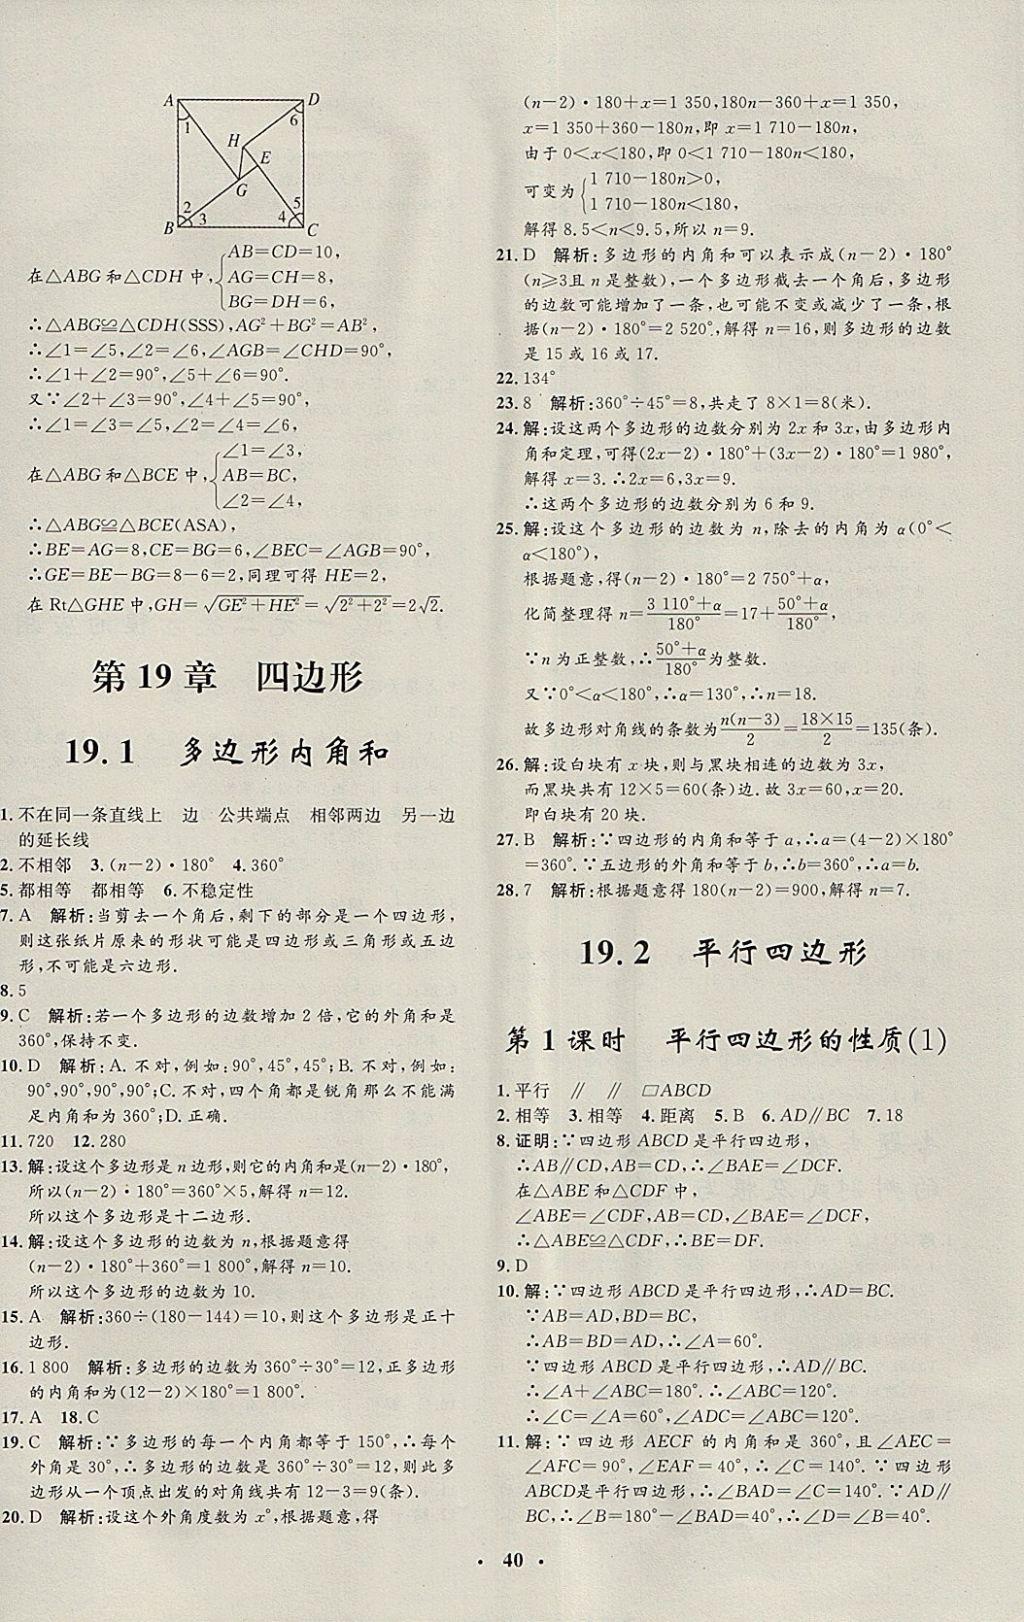 A D
1 6
H
E
G
2 3 4 5
B C
在△ABG和△CDH中,{AB=CD=10,
AG=CH=8,
BG=DH=6,
∴△ABG≌△CDH(SSS),AG²+BG²=AB²,
∴∠1=∠5,∠2=∠6,∠AGB=∠CHD=90°,
∴∠1+∠2=90°,∠5+∠6=90°.
又∵∠2+∠3=90°,∠4+∠5=90°,
∴∠1=∠3=∠5,∠2=∠4=∠6,
在△ABG和△BCE中,{∠1=∠3,
AB=BC,
∠2=∠4,
∴△ABG≌△BCE(ASA),
∴BE=AG=8,CE=BG=6,∠BEC=∠AGB=90°,
∴GE=BE-BG=8-6=2,同理可得HE=2,
在Rt△GHE中,GH=√(GE²+HE²)=√(2²+2²)=2√2.
第19章 四边形
19.1 多边形内角和
1.不在同一条直线上 边 公共端点 相邻两边 另一边
的延长线
2.不相邻 3.(n-2)·180° 4.360°
5.都相等 都相等 6.不稳定性
7.A 解析:当剪去一个角后,剩下的部分是一个四边形,
则这张纸片原来的形状可能是四边形或三角形或五边
形,不可能是六边形.
8.5
9.C 解析:若一个多边形的边数增加2倍,它的外角和是
360°,保持不变.
10.D 解析:A.不对,例如:90°,45°,45°;B.不对,例如:
90°,90°,90°,90°;C.不对,四个角都是锐角那么不能满
足内角和为360°;D.正确.
11.720 12.280
13.解:设这个多边形是n边形,则它的内角和是(n-2)·180°,
所以(n-2)·180°=360°×5,解得n=12.
所以这个多边形是十二边形.
14.解:设这个多边形的边数为n,根据题意得
(n-2)·180°+360°=1 800°,解得n=10.
所以这个多边形的边数为10.
15.A 解析:360÷(180-144)=10,则这个多边形是正十
边形.
16.1 800 解析:多边形的边数为360°÷30°=12,正多边形
的内角和为(12-2)×180°=1 800°.
17.A 18.C
19.C 解析:∵多边形的每一个内角都等于150°,∴每个
外角是30°,∴多边形的边数是360°÷30°=12,则此多
边形从一个顶点出发的对角线共有12-3=9(条).
20.D 解析:设这个外角度数为x°,根据题意,得
(n-2)·180+x=1 350,180n-360+x=1 350,
x=1 350+360-180n,即x=1 710-180n,
由于0<x<180,即0<1 710-180n<180,
可变为{1 710-180n>0,
1 710-180n<180,
解得8.5<n<9.5,所以n=9.
21.D 解析:多边形的内角和可以表示成(n-2)·180°
(n≥3且n是整数),一个多边形截去一个角后,多边形
的边数可能增加了一条,也可能不变或减少了一条,根
据(n-2)·180°=2 520°,解得n=16,则多边形的边数
是15或16或17.
22.134°
23.8 解析:360°÷45°=8,共走了8×1=8(米).
24.解:设这两个多边形的边数分别为2x和3x,由多边形内
角和定理,可得(2x-2)·180°+(3x-2)·180°=1 980°,
解得x=3.∴2x=6,3x=9.
∴这两个多边形的边数分别为6和9.
25.解:设这个多边形的边数为n,除去的内角为α(0°<
α<180°),
根据题意,得(n-2)·180°=2 750°+α,
化简整理得n=(3 110°+α)/180°=17+(50°+α)/180°,
∵n为正整数,∴(50°+α)/180°为整数.
又∵0°<α<180°,∴α=130°,∴n=18.
故多边形对角线的条数为n(n-3)/2=18×15/2=135(条).
26.解:设白块有x块,则与黑块相连的边数为3x,
而黑块共有12×5=60(条)边.故3x=60,x=20.
即白块有20块.
27.B 解析:∵四边形的内角和等于a,∴a=(4-2)×180°
=360°.∵五边形的外角和等于b,∴b=360°,∴a=b.
28.7 解析:根据题意得180(n-2)=900,解得n=7.
19.2 平行四边形
第1课时 平行四边形的性质(1)
1.平行 ∥ ∥ □ABCD
2.相等 3.相等 4.距离 5.B 6.AD∥BC 7.18
8.证明:∵四边形ABCD是平行四边形,
∴AB∥CD,AB=CD,∴∠BAE=∠DCF.
在△ABE和△CDF中,
∠ABE=∠CDF,AB=CD,∠BAE=∠DCF,
∴△ABE≌△CDF,∴BE=DF.
9.D
10.解:∵四边形ABCD是平行四边形,∴AD=BC.
∵AB=AD,BD=BC,
∴AB=BD=AD,∴∠A=60°.
∵四边形ABCD是平行四边形,∴AD∥BC.
∴∠A+∠ABC=180°.∴∠ABC=120°.
∴∠C=∠A=60°,∠ADC=∠ABC=120°.
11.解:∵四边形AECF的内角和是360°,且∠AEC=
∠AFC=90°,∠EAF=40°,∴∠C=140°.∵四边形
ABCD是平行四边形,∴∠BAD=∠C=140°.∵AD∥
BC,∴∠B=180°-∠BAD=40°,∴∠D=∠B=40°.
·40·